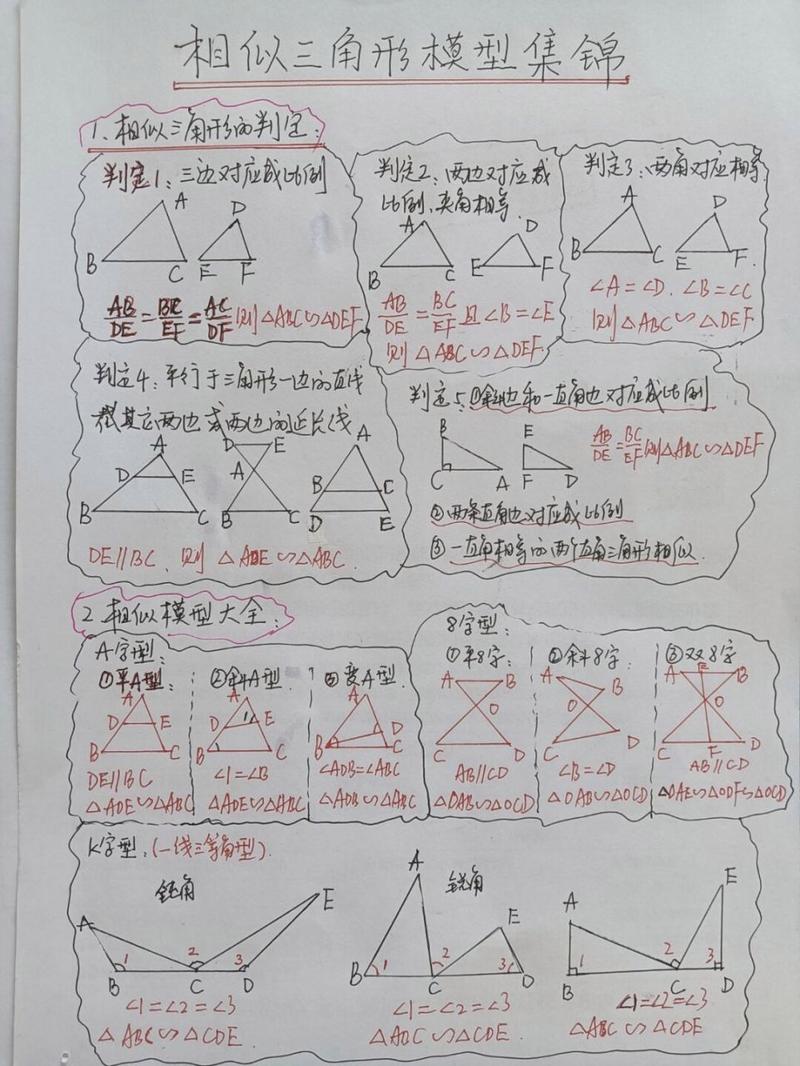 相似三角形模型集锦
1、相似三角形的判定:
判定1:三边对应成比例
A D
B C E F
AB/DE=BC/EF=AC/DF 则△ABC∽△DEF
判定2、两边对应成
比例、夹角相等.
A D
B C E F
AB/DE=BC/EF 且∠B=∠E
则△ABC∽△DEF.
判定3、两角对应相等
A D
B C E F.
∠A=∠D.∠B=∠C
则△ABC∽△DEF
判定4:平行于三角形一边的直线
截其它两边或两边的延长线
A D E A
D E A B C
B C B C D E
DE∥BC.则△ADE∽△ABC.
判定5、①斜边和一直角边对应成比例
B E
C A F D
AB/DE=BC/EF 则△ABC∽△DEF
②两条直角边对应成比例
③一直角相等的两个直角三角形相似.
2.相似模型大全:
A字型:
①平A型:
A
D E
B C
DE∥BC
△ADE∽△ABC
②斜A型
A
D 1 E
B C
∠1=∠B
△ADE∽△ABC
③变A型.
A
D
B C
∠ADB=∠ABC
△ADB∽△ABC
8字型:
①平8字:
A B
O
C D
AB∥CD
△OAB∽△OCD
②斜8字
A B
O
C D
∠B=∠D
△OAB∽△OCD
③双8字
A E B
O
C F D
AB∥CD
△OAE∽△ODF∽△OCD
K字型:(一线三等角型).
钝角
A E
1 2 3
B C D
∠1=∠2=∠3
△ABC∽△CDE
锐角
A E
1 2 3
B C D
∠1=∠2=∠3
△ADC∽△CDE.
A E
1 2 3
B C D
∠1=∠2=∠3
△ABC∽△CDE